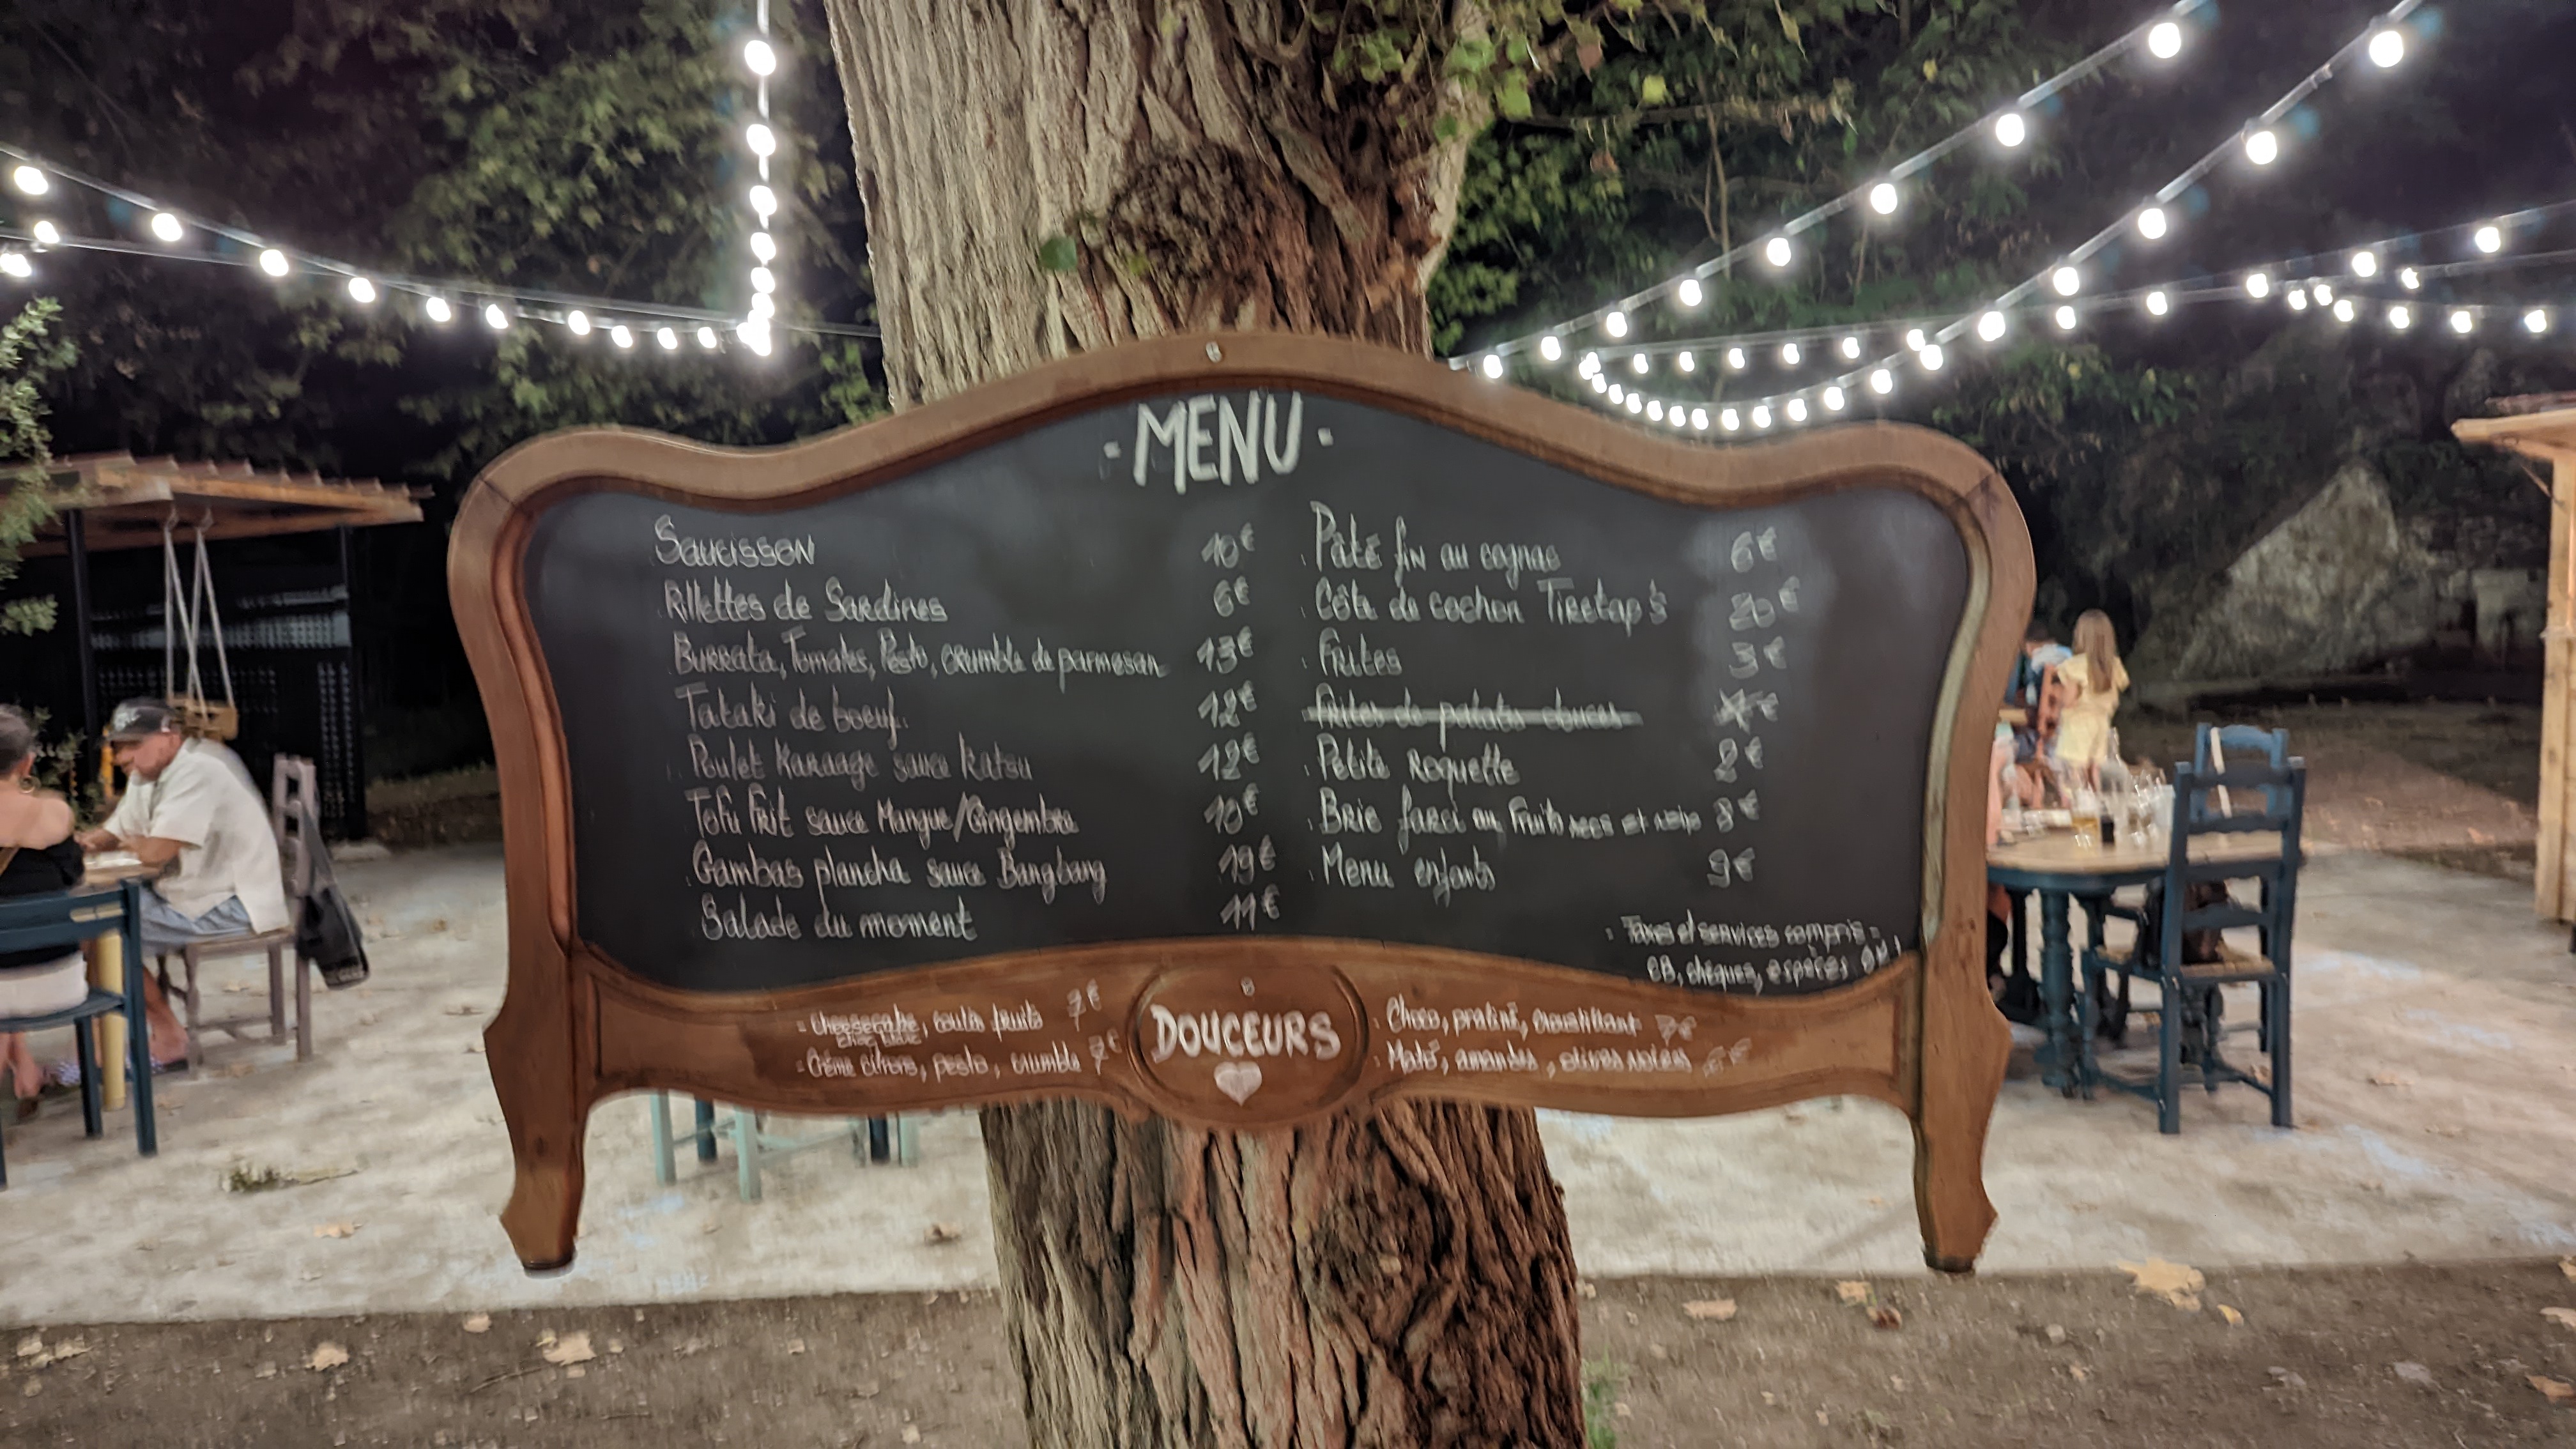 - MENU -
Saucisson 10€
. Rillettes de Sardines 6€
. Burrata, Tomates, Pesto, crumble de parmesan 13€
. Tataki de boeuf. 12€
. Poulet Karaage sauce katsu 12€
. Tofu frit sauce Mangue/Gingembre 10€
. Gambas plancha sauce Bangbang 19€
. Salade du moment 11€
. Pâté fin au cognac 6€
. Côte de cochon Tiretap's 20€
. Frites 3€
. Frites de patates douces 4€
. Petite Roquette 2€
. Brie farci aux fruits secs et noix 8€
. Menu enfants 9€
- Taxes et services compris -
CB, chèques, espèces OK!
DOUCEURS
- Cheesecake, coulis fruits 7€
choc blanc
- Crème citron, pesto, crumble 7€
. Choco, praliné, croustillant 7€
. Mató, amandes, olives noires 6€